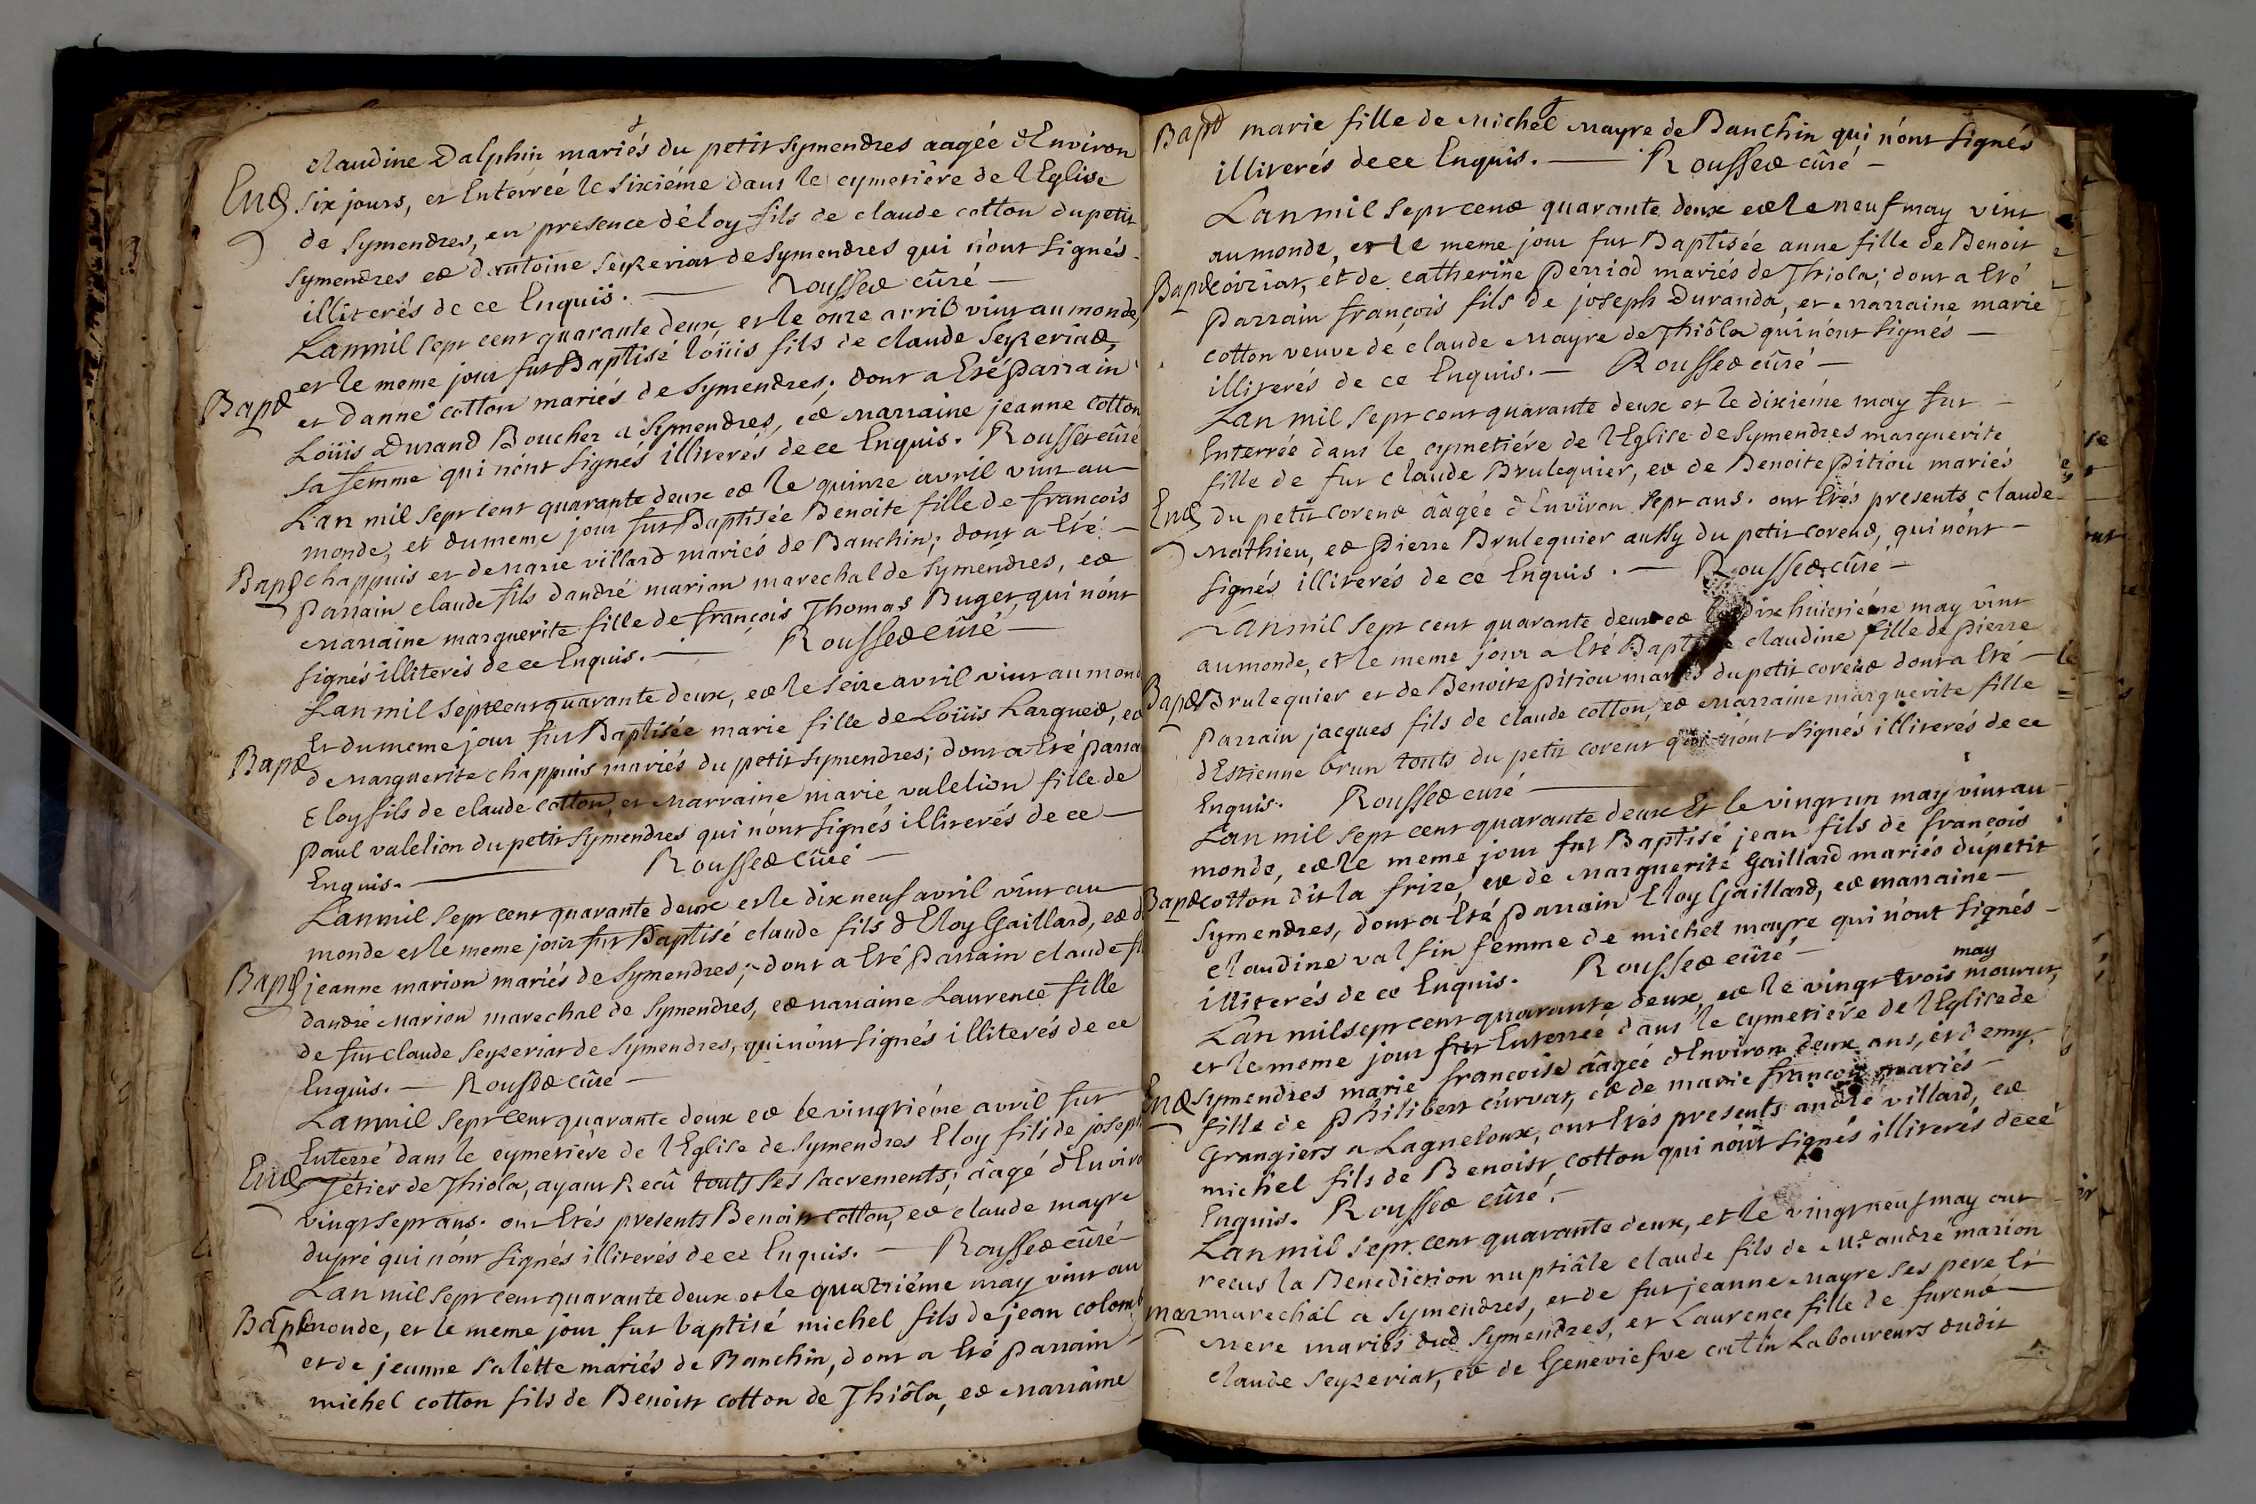 claudine Dalphin mariés du petit Symendres aagéé d'Environ
Ent
six jours, et Enterréé le sixiéme dans le cymetiére de l'Eglise
de Symendres, en presence d'éloy fils de claude cotton du petit
Symendres et d'antoine Seyzeriat de Symendres qui n'ont signés
illiterés de ce Enquis. — Rousset cûré —
Lanmil sept cent quarante deux, et le onze avril vint au monde,
et le meme jour fut Baptisé loüis fils de claude Seyzeriat,
Bapt
et d'anne cotton mariés de Symendres; dont a Eté Parrain
Loüis Durand Boucher a Symendres, et Marraine jeanne Cotton
sa femme qui n'ont signés illiterés de ce Enquis. Rousset cûré
Lan mil sept cent quarante deux et le quinze avril vint au
monde, et du meme jour fut Baptisée Benoite fille de francois
Bapt
chappuis et de Marie villard mariés de Banchin; dont a Eté —
Parrain claude fils d'andré marion marechal de Symendres, et
Marraine marguerite fille de françois Thomas Buget, qui n'ont
signés illiterés de ce Enquis. — Rousset cûré —
Lan mil sept cent quarante deux, et le seize avril vint au mond
Et du meme jour fut Baptisée marie fille de Loüis Largued, et
Bapt
de Marguerite chappuis mariés du petit Symendres; dont a Eté Parra
Eloy fils de claude cotton, et Marraine marie valelion fille de
Paul valelion du petit Symendres qui n'ont signés illiterés de ce —
Enquis. — Rousset Cûré —
Lanmil sept cent quarante deux et le dix neuf avril vint au
monde et le meme jour fut Baptisé claude fils d'Eloy Gaillard, et d
Bapt
jeanne marion mariés de Symendres; dont a Eté Parrain claude fi
d'andré Marion marechal de Symendres, et Marraine Laurence fille
de fut claude Seyzeriat de Symendres, qui n'ont signés illiterés de ce
Enquis. — Rousset Cûré —
Lanmil sept cent quarante deux et le vingtiéme avril fut
Enterré dans le cymetiére de l'Eglise de Symendres Eloy fils de joseph
Ent
Tétier de Thiola, ayant Recû touts ses sacrements; aâgé d'Enviro
vingt sept ans. ont Etés presents Benoist cotton, et claude mayre
dupré qui n'ont signés illiterés de ce Enquis. — Rousset cûré —
Lan mil sept cent quarante deux et le quatriéme may vint au
Bapt
monde, et le meme jour fut baptisé michel fils de jean colomb
et de jeanne salétte mariés de Banchin, dont a Eté parrain
michel cotton fils de Benoist cotton de Thiôla, et Marraine
Bapt
marie fille de Michel Mayre de Banchin qui n'ont signés
illiterés de ce Enquis. — Rousset cûré —
Lanmil sept cent quarante deux et le neuf may vint
au monde, et le meme jour fut Baptisée anne fille de Benoit
Bapt
coiriat, et de catherine Perriod mariés de Thiola; dont a Eté
Parrain françois fils de joseph Duranda, et Marraine marie
cotton veuve de claude Mayre de Thiôla qui n'ont signés —
illiterés de ce Enquis. — Rousset cûré —
Lan mil sept cent quarante deux et le dixiéme may fut
Enterrée dans le cymetiére de l'Eglise de Symendres marguerite
fille de fut claude Brulequier, et de Benoite Pitiou mariés
Ent
du petit Corent âagée d'Environ sept ans. ont Etés presents claude
Mathieu, et Pierre Brulequier aussy du petit corend, qui n'ont —
signés illiterés de ce Enquis. — Rousset cûré —
Lanmil sept cent quarante deux et le Dix huitiéme may vint
au monde, et le meme jour a Eté Baptisée claudine fille de Pierre
Bapt
Brulequier et de Benoite Pitiou mariés du petit corent dont a Eté —
Parrain jacques fils de claude cotton, et Marraine marguerite fille
d'Estienne brun touts du petit corent qui n'ont signés illiterés de ce
Enquis. Rousset curé —
Lan mil sept cent quarante deux Et le vingt un may vint au
monde, et le meme jour fut Baptisé jean fils de françois
Bapt
cotton dit la frize, et de Marguerite Gaillard mariés du petit
Symendres, dont a Eté Parrain Eloy Gaillard, et marraine —
claudine valfin femme de michel mayre qui n'ont signés —
illiterés de ce Enquis. Rousset cûré —
may
Lan mil sept cent quarante deux, et le vingt trois mourut,
et le meme jour fut Enterréé dans le cymetiére de l'Eglise de
Ent
Symendres marie françoise âagéé d'Environ deux ans, et demy,
fille de Philibert cûrvat, et de marie françois mariés —
Grangiers a Lagneloux, ont Etés presents andré villard, et
michel fils de Benoist cotton qui n'ont signés illiterés de ce
Enquis. Rousset cûré. —
Lan mil sept cent quarante deux, et le vingt neuf may ont
recus la Benediction nuptiâle claude fils de Mre. andré marion
mar
marechal a Symendres, et de fut jeanne Mayre ses pere Et
Mere mariés dud Symendres, et Laurence fille de furent —
claude Seyzeriat, et de Geneviefve catin Laboureurs dudit